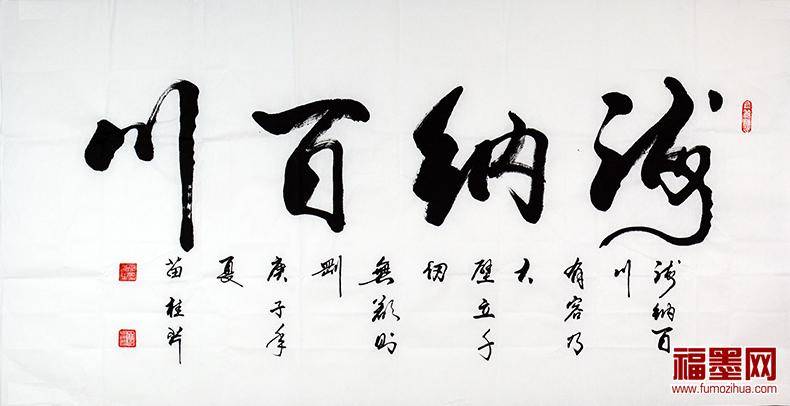 海纳百川
海纳百
川
有容乃
大
壁立千
仞
無欲则
刚
庚子年
夏
苗桂
福墨网
www.fumozihua.com